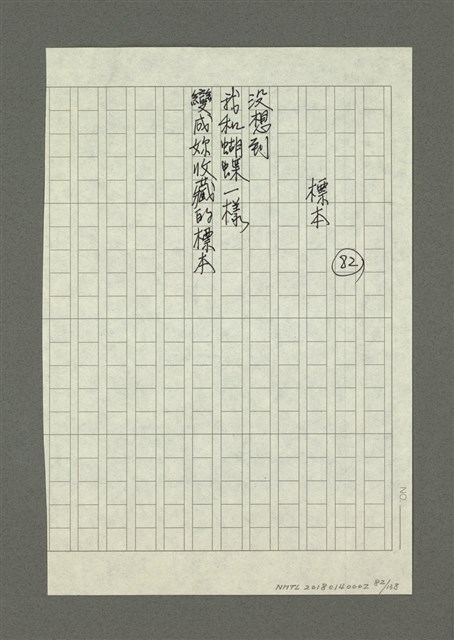 82
標本
没想到
我和蝴蝶一樣
變成妳收藏的標本
NO.
NMTL 20180140002 82/168